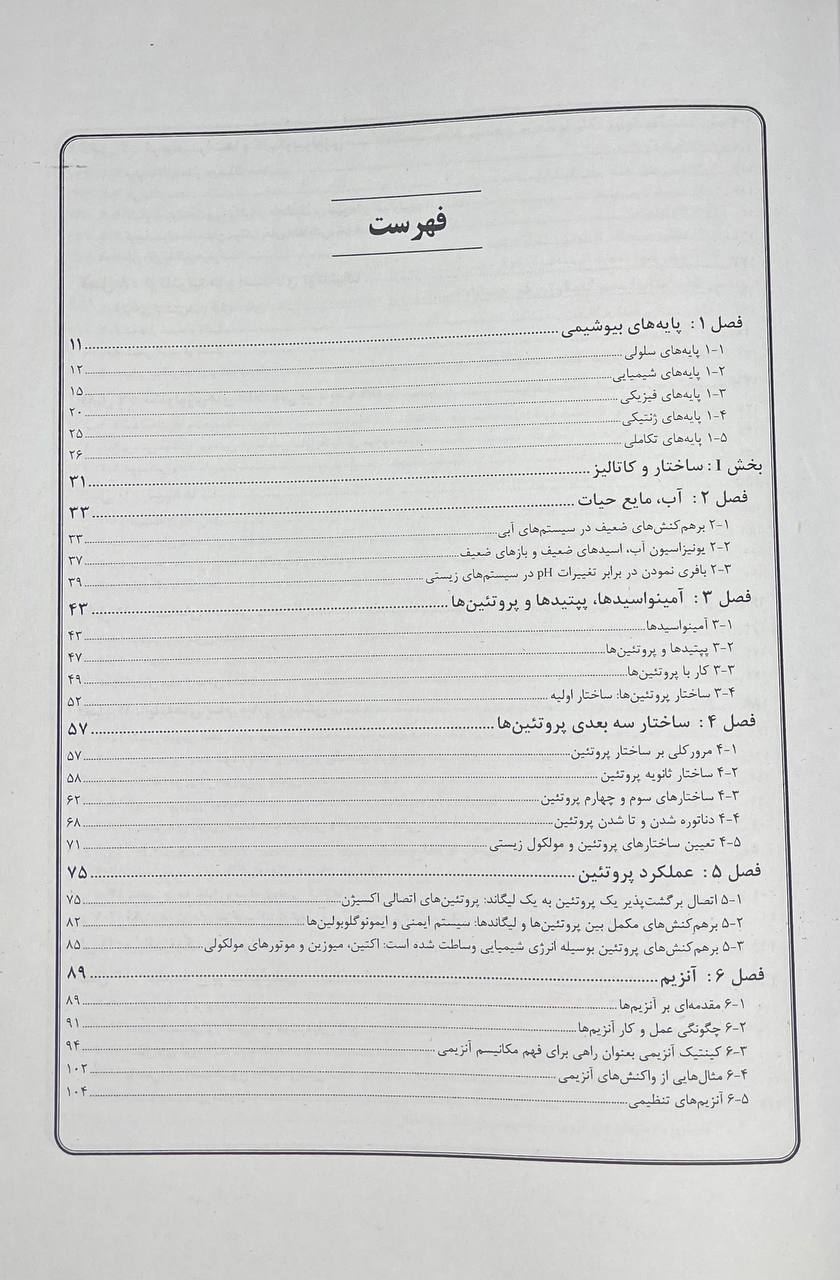 فهرست
فصل ۱: پایه‌های بیوشیمی ۱۱
۱-۱ پایه‌های سلولی ۱۲
۱-۲ پایه‌های شیمیایی ۱۵
۱-۳ پایه‌های فیزیکی ۲۰
۱-۴ پایه‌های ژنتیکی ۲۵
۱-۵ پایه‌های تکاملی ۲۶
بخش I: ساختار و کاتالیز ۳۱
فصل ۲: آب، مایع حیات ۳۳
۲-۱ برهم‌کنش‌های ضعیف در سیستم‌های آبی ۳۳
۲-۲ یونیزاسیون آب، اسیدهای ضعیف و بازهای ضعیف ۳۷
۲-۳ بافری نمودن در برابر تغییرات pH در سیستم‌های زیستی ۳۹
فصل ۳: آمینواسیدها، پپتیدها و پروتئین‌ها ۴۳
۳-۱ آمینواسیدها ۴۳
۳-۲ پپتیدها و پروتئین‌ها ۴۷
۳-۳ کار با پروتئین‌ها ۴۹
۳-۴ ساختار پروتئین‌ها: ساختار اولیه ۵۲
فصل ۴: ساختار سه بعدی پروتئین‌ها ۵۷
۴-۱ مرورکلی بر ساختار پروتئین ۵۷
۴-۲ ساختار ثانویه پروتئین ۵۸
۴-۳ ساختارهای سوم و چهارم پروتئین ۶۲
۴-۴ دناتوره شدن و تا شدن پروتئین ۶۸
۴-۵ تعیین ساختارهای پروتئین و مولکول زیستی ۷۱
فصل ۵: عملکرد پروتئین ۷۵
۵-۱ اتصال برگشت‌پذیر یک پروتئین به یک لیگاند: پروتئین‌های اتصالی اکسیژن ۷۵
۵-۲ برهم‌کنش‌های مکمل بین پروتئین‌ها و لیگاندها: سیستم ایمنی و ایمونوگلوبولین‌ها ۸۲
۵-۳ برهم‌کنش‌های پروتئین بوسیله انرژی شیمیایی وساطت شده است: اکتین، میوزین و موتورهای مولکولی ۸۵
فصل ۶: آنزیم ۸۹
۶-۱ مقدمه‌ای بر آنزیم‌ها ۸۹
۶-۲ چگونگی عمل و کار آنزیم‌ها ۹۱
۶-۳ کینتیک آنزیمی بعنوان راهی برای فهم مکانیسم آنزیمی ۹۴
۶-۴ مثال‌هایی از واکنش‌های آنزیمی ۱۰۲
۶-۵ آنزیم‌های تنظیمی ۱۰۴